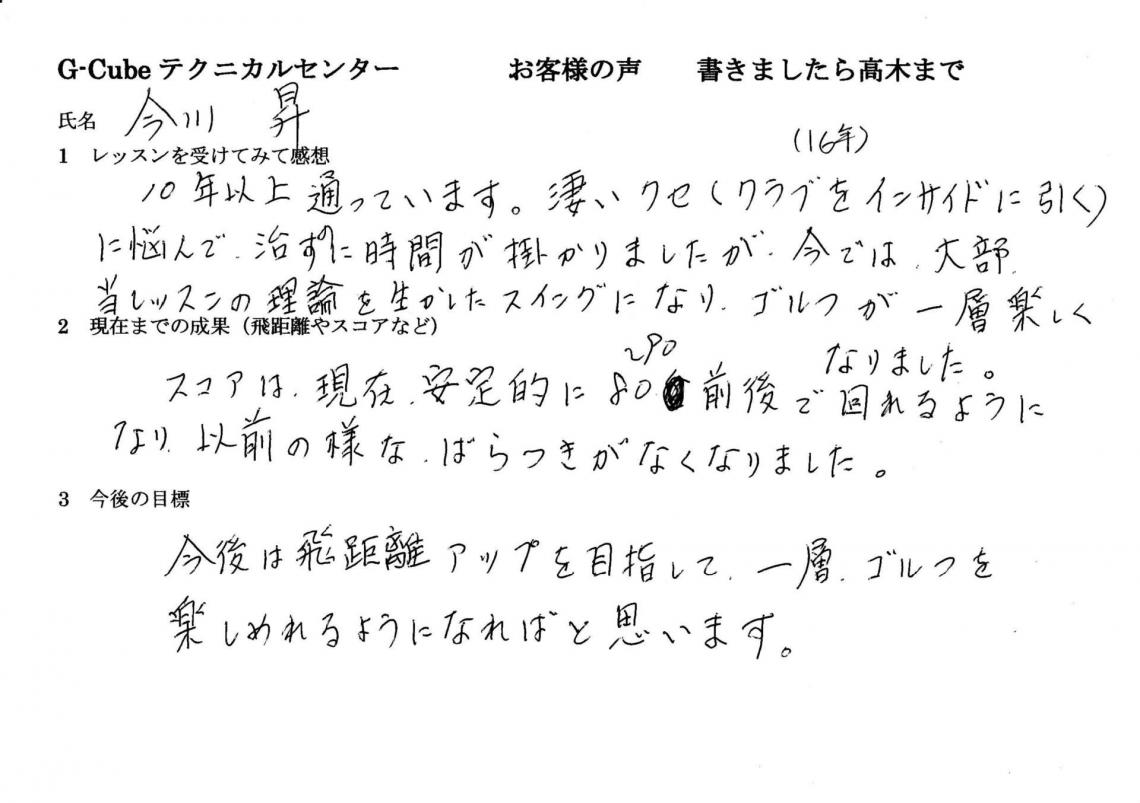 G-Cube テクニカルセンター お客様の声 書きましたら高木まで
氏名 今川 昇
1 レッスンを受けてみて感想
(16年)
10年以上通っています。凄いクセ(クラブをインサイドに引く)
に悩んで、治すのに時間が掛かりましたが、今では、大部、
当レッスンの理論を生かしたスイングになり、ゴルフが一層楽しく
なりました。
2 現在までの成果(飛距離やスコアなど)
~90
スコアは、現在、安定的に80前後で回れるように
なり、以前の様な、ばらつきがなくなりました。
3 今後の目標
今後は飛距離アップを目指して、一層、ゴルフを
楽しめれるようになればと思います。